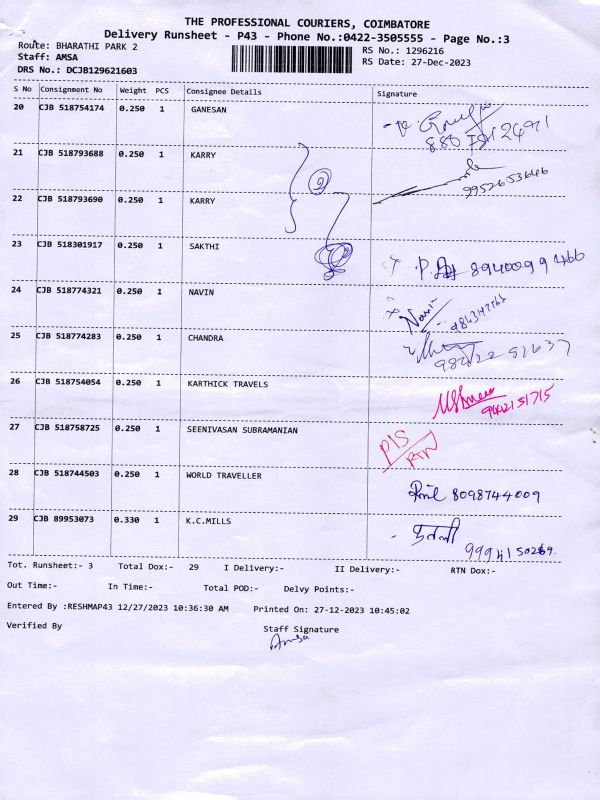 THE PROFESSIONAL COURIERS, COIMBATORE
Delivery Runsheet - P43 - Phone No.:0422-3505555 - Page No.:3
Route: BHARATHI PARK 2
RS No.: 1296216
Staff: AMSA
RS Date: 27-Dec-2023
DRS No.: DCJB129621603
S No Consignment No Weight PCS Consignee Details Signature
20 CJB 518754174 0.250 1 GANESAN
21 CJB 518793688 0.250 1 KARRY
9952653646
22 CJB 518793690 0.250 1 KARRY
23 CJB 518301917 0.250 1 SAKTHI
24 CJB 518774321 0.250 1 NAVIN
25 CJB 518774283 0.250 1 CHANDRA
26 CJB 518754054 0.250 1 KARTHICK TRAVELS
9442151715
27 CJB 518758725 0.250 1 SEENIVASAN SUBRAMANIAN
PIS
RTN
28 CJB 518744503 0.250 1 WORLD TRAVELLER
8098744009
29 CJB 89953073 0.330 1 K.C.MILLS
9994150269.
Tot. Runsheet:- 3 Total Dox:- 29 I Delivery:- II Delivery:- RTN Dox:-
Out Time:- In Time:- Total POD:- Delvy Points:-
Entered By :RESHMAP43 12/27/2023 10:36:30 AM Printed On: 27-12-2023 10:45:02
Verified By Staff Signature
Amsa